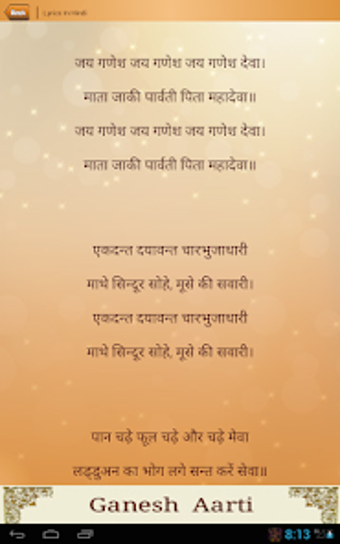 Back
Lyrics In Hindi
जय गणेश जय गणेश जय गणेश देवा।
माता जाकी पार्वती पिता महादेवा॥
जय गणेश जय गणेश जय गणेश देवा।
माता जाकी पार्वती पिता महादेवा॥
एकदन्त दयावन्त चारभुजाधारी
माथे सिन्दूर सोहे, मूसे की सवारी।
एकदन्त दयावन्त चारभुजाधारी
माथे सिन्दूर सोहे, मूसे की सवारी।
पान चढ़े फूल चढ़े और चढ़े मेवा
लड्डुअन का भोग लगे सन्त करें सेवा॥
Ganesh Aarti
8:13